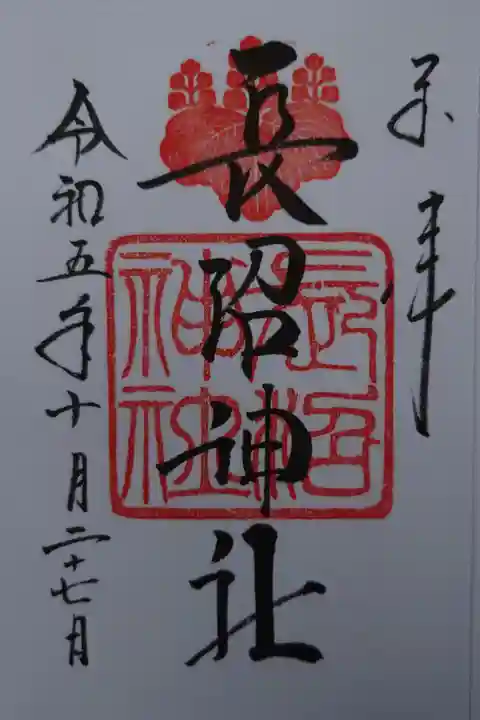 奉拝
長沼神社
長沼神社
令和五年十月二十七日